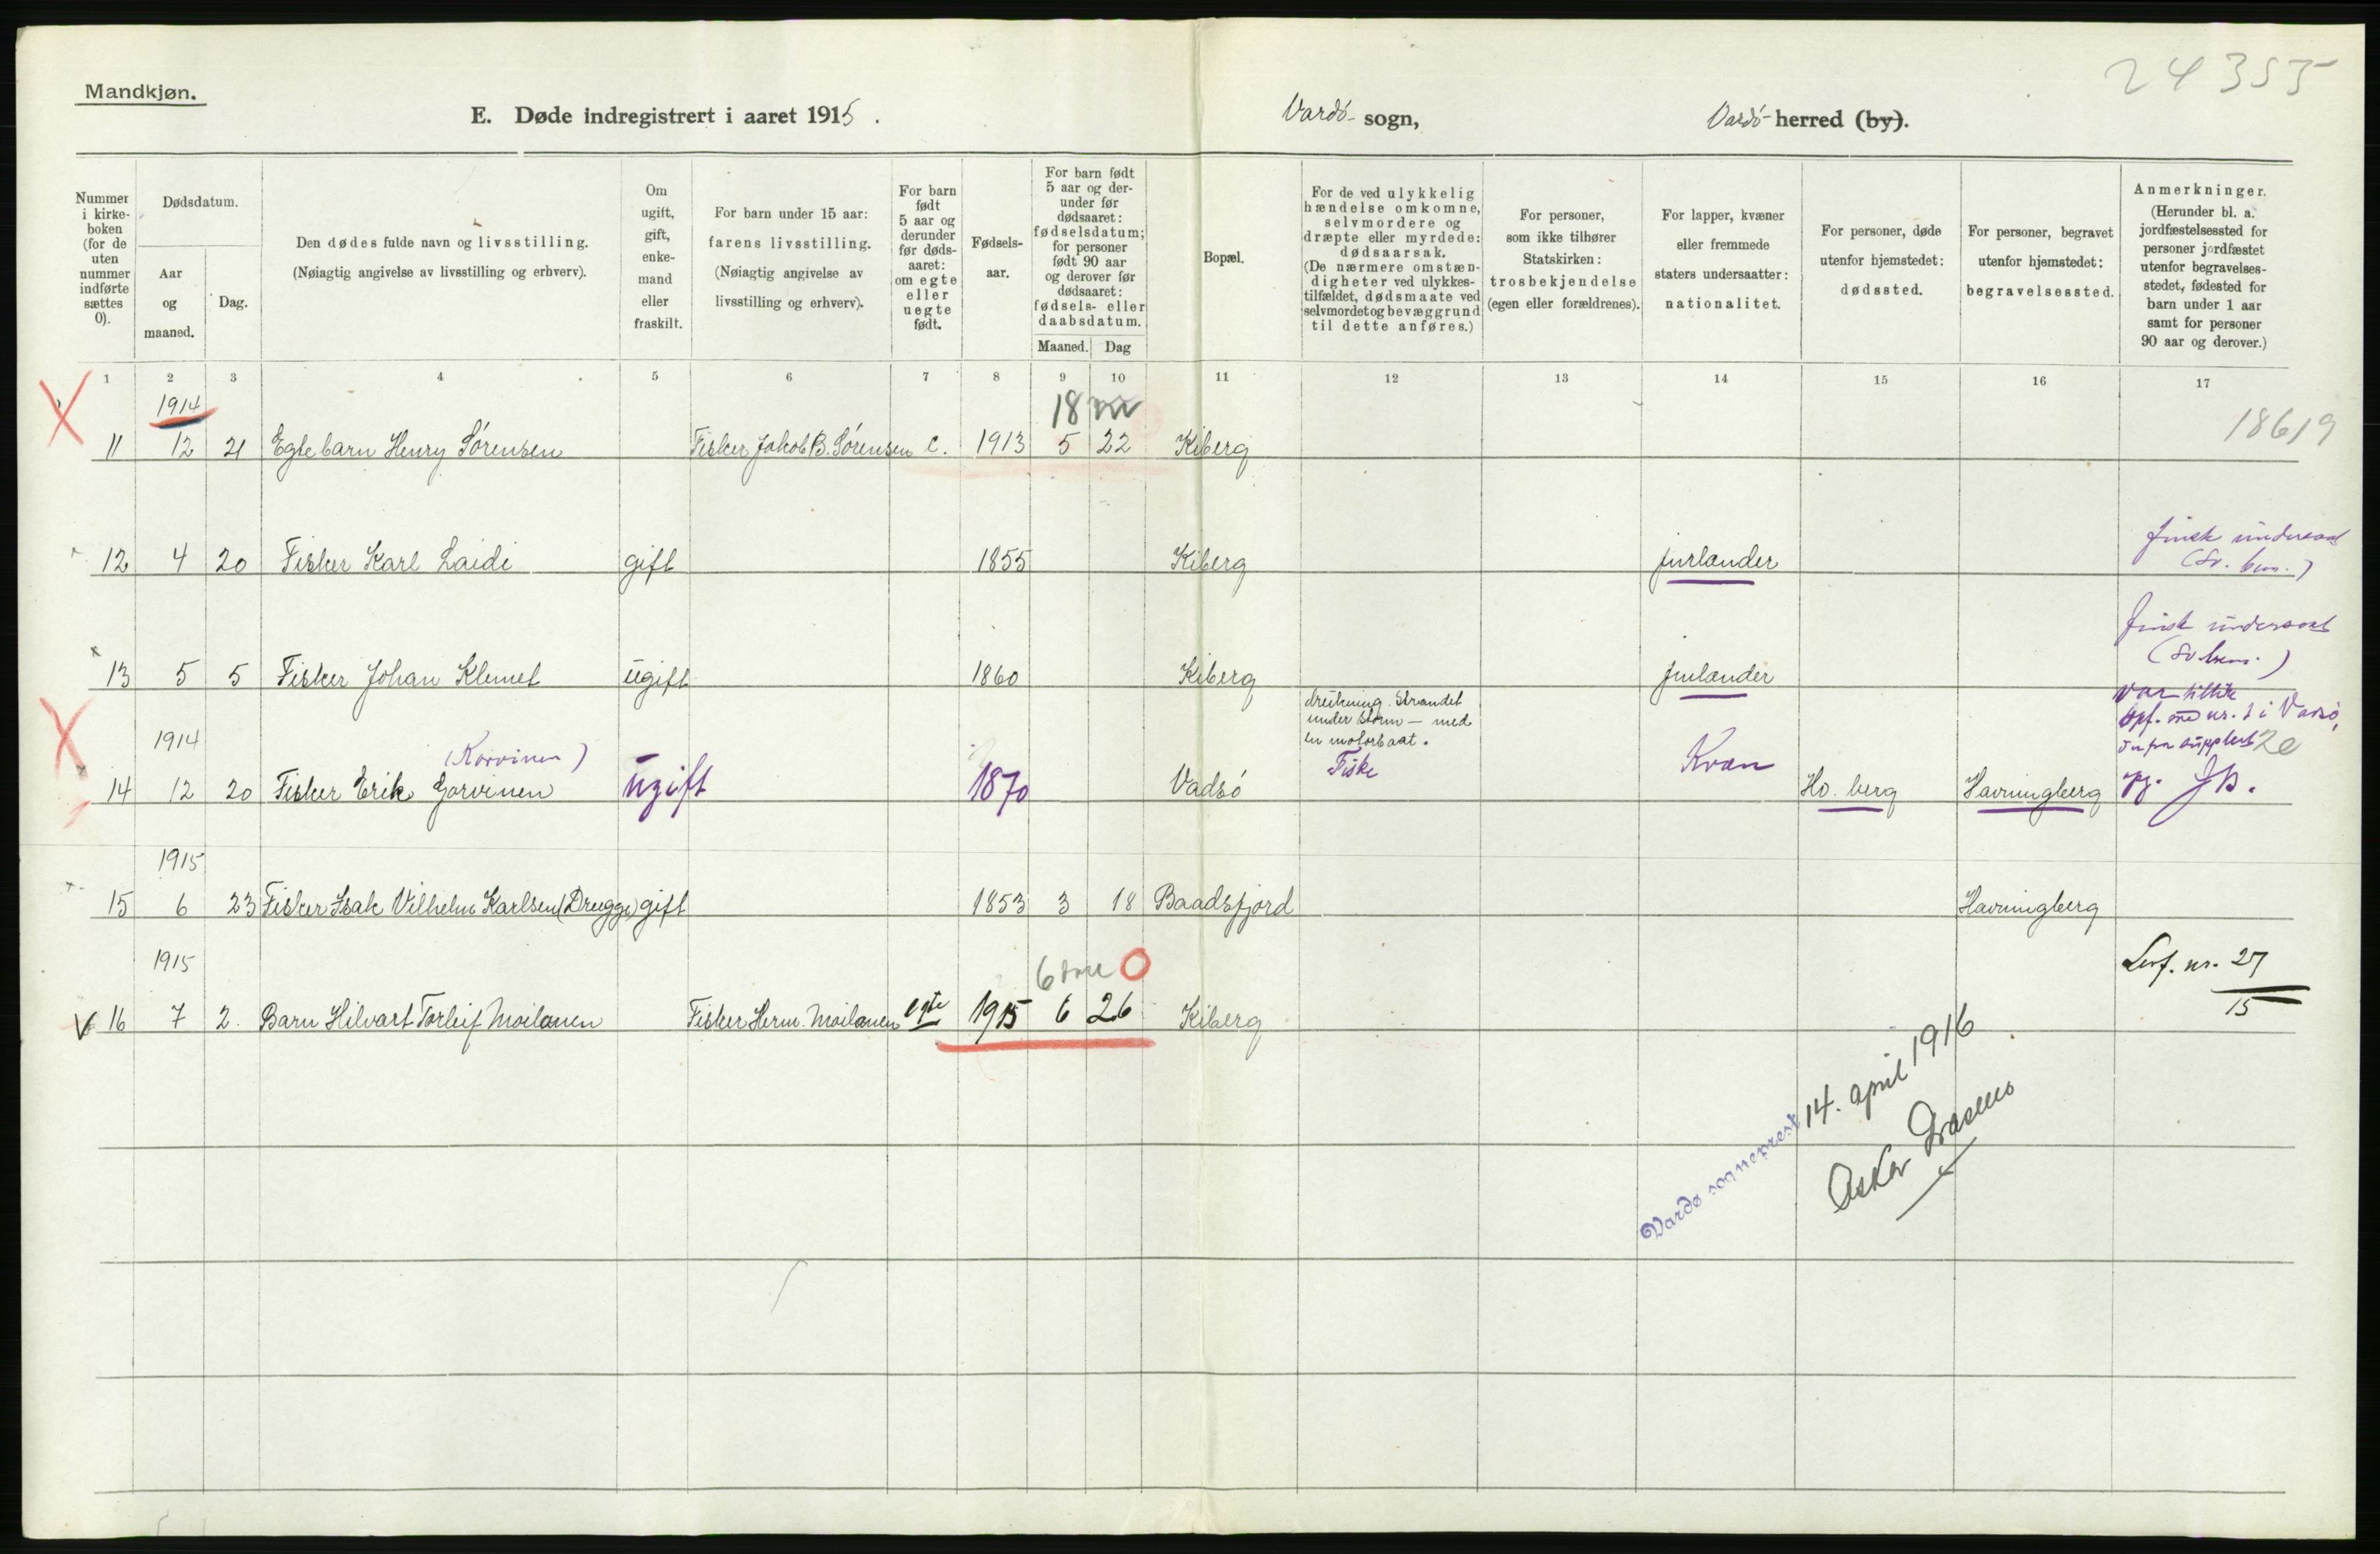 24355
Mandkjøn.
E. Døde indregistrert i aaret 1915. Vardö sogn, Vardö herred (by).
Nummer i kirke-boken (for de uten nummer indførte sættes 0).
Dødsdatum.
Aar og maaned.
Dag.
Den dødes fulde navn og livsstilling.
(Nøiagtig angivelse av livsstilling og erhverv).
Om ugift, gift, enke-mand eller fraskilt.
For barn under 15 aar: farens livsstilling.
(Nøiagtig angivelse av livsstilling og erhverv).
For barn født 5 aar og derunder før døds-aaret: om egte eller uegte født.
Fødsels-aar.
For barn født 5 aar og der-under før dødsaaret: fødselsdatum; for personer født 90 aar og derover før dødsaaret: fødsels- eller daabsdatum.
Maaned. Dag
Bopæl.
For de ved ulykkelig hændelse omkomne, selvmordere og dræpte eller myrdede: dødsaarsak.
(De nærmere omstæn-digheter ved ulykkes-tilfældet, dødsmaate ved selvmordet og bevæggrund til dette anføres.)
For personer, som ikke tilhører Statskirken: trosbekjendelse (egen eller forældrenes).
For lapper, kvæner eller fremmede staters undersaatter: nationalitet.
For personer, døde utenfor hjemstedet: dødssted.
For personer, begravet utenfor hjemstedet: begravelsessted.
Anmerkninger.
(Herunder bl. a. jordfæstelsessted for personer jordfæstet utenfor begravelses-stedet, fødested for barn under 1 aar samt for personer 90 aar og derover.)
1 2 3 4 5 6 7 8 9 10 11 12 13 14 15 16 17
1914 18 m
18619
11 12 21 Egte barn Henry Sörensen Fisker Jakob B. Sörensen e. 1913 5 22 Kiberg
finsk undersaat
12 4 20 Fisker Karl Laidi gift 1855 Kiberg finlænder
finsk undersaat
13 5 5 Fisker Johan Klemet ugift 1860 Kiberg finlænder
drukning. Strandet
under storm — med
en motorbaat.
1914 (Korvinen)
14 12 20 Fisker Erik Gorvinen ugift 1870 Vadsö Fiske Kvæn Ho. berg Havningberg
1915
15 6 23 Fisker Isak Vilhelm Karlsen (Drugge) gift 1853 3 18 Baadsfjord Havningberg
1915 6 0
Levf. nr. 27
15
16 7 2. Barn Hilvart Torleif Moilanen Fisker Herm. Moilanen egte 1915 6 26 Kiberg
Vardø sogneprest 14. april 1916